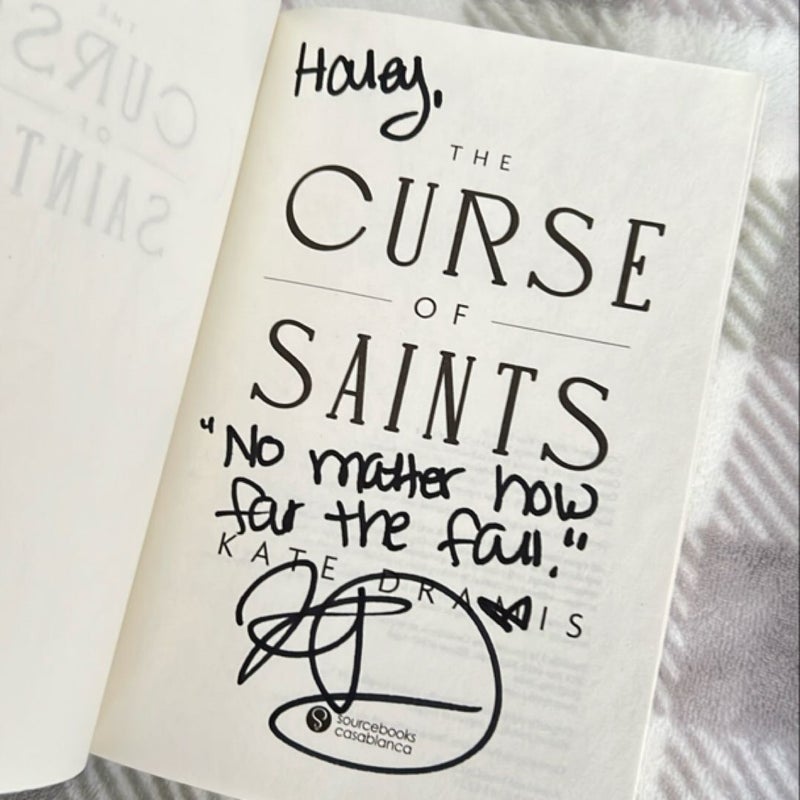 Haley,
THE
CURSE
OF
SAINTS
"No matter how
far the fall."
KATE DRAMIS
sourcebooks
casablanca